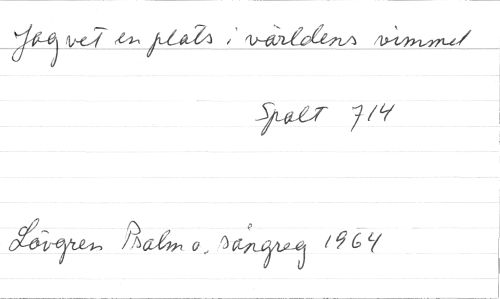 Jag vet en plats i världens vimmel
Spalt 714
Lövgren Psalm o. sångreg 1964